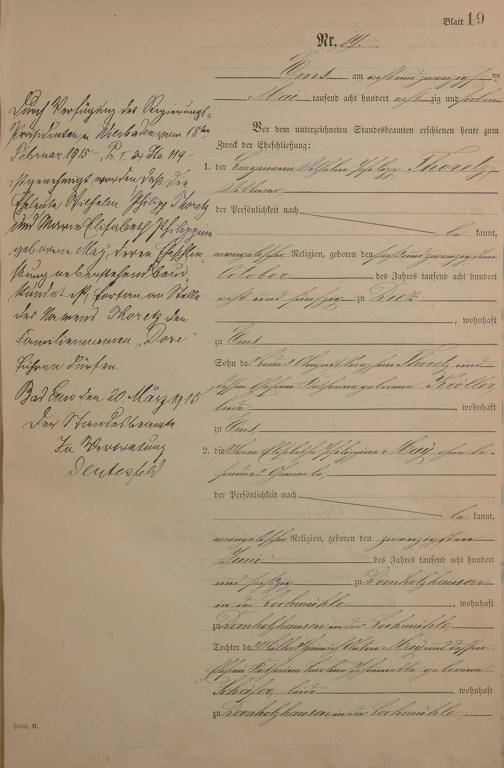 Blatt 19
Nr. 19.
Ems am ein und zwanzigsten
Mai tausend acht hundert acht zig und sieben
Vor dem unterzeichneten Standesbeamten erschienen heute zum
Zweck der Eheschließung:
1. der Wilhelm Philipp Thoretz
der Persönlichkeit nach
be kannt,
evangelischer Religion, geboren den
October des Jahres tausend acht hundert
acht und fünfzig zu Diez
, wohnhaft
zu Ems
Sohn de Thoretz und
dessen Ehefrau geborene Kröller
beide wohnhaft
zu Ems
2. die Maria Elisabethe Philippine May ohne be-
sonderes Gewerbe
der Persönlichkeit nach
be kannt,
evangelischer Religion, geboren den zwanzigsten
Juni des Jahres tausend acht hundert
und sechzig zu Dornholzhausen
in der Lochmühle , wohnhaft
zu Dornholzhausen in der Lochmühle
Tochter de Müllers Heinrich Anton May und dessen
Ehefrau Caroline geborene
Schäfer, beide wohnhaft
zu Dornholzhausen in der Lochmühle
Durch Verfügung des Regierungs-
Präsidenten in Wiesbaden vom 18ten
Februar 1915 - Pr. I 119 -
ist genehmigt worden, daß die
Eheleute Wilhelm Philipp Thoretz
und Maria Elisabeth Philippine
geborene May, deren Eheschlie-
ßung nebenstehend beur-
kundet ist, fortan an Stelle
des Namens Thoretz den
Familiennamen "Dore"
führen dürfen.
Bad Ems den 20 März 1915
Der Standesbeamte
In Vertretung
Deutesfeld
Form. B.